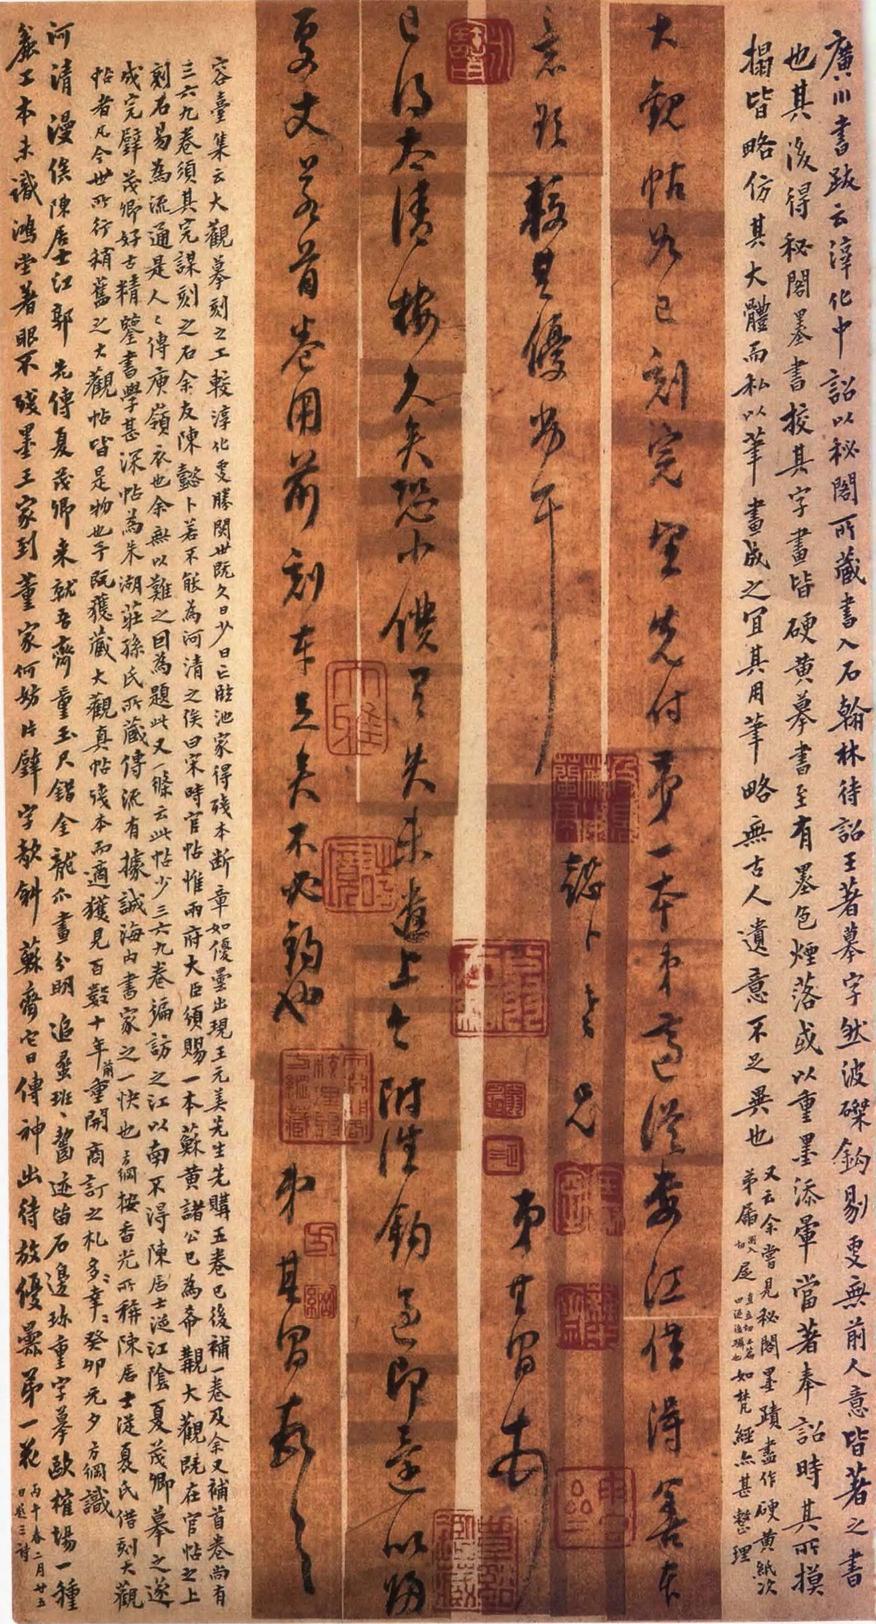 廣川書跋云淳化中詔以秘閣所藏書入石翰林待詔王著摹字然波磔鈎剔更無前人意皆著之書
也其後得秘閣墨書挍其字畫皆硬黄摹書至有墨色煙落或以重墨添暈當著奉詔時其所摸
搨皆略仿其大體而私以筆畫成之宜其用筆略無古人遺意不足異也
又云余嘗見秘閣墨蹟盡作硬黄紙次
第如梵經亦甚整理
大觀帖如已刻完望先付第一本弟適從婁江借得善本
意欲較其優劣耳
懿卜老兄
弟其昌頓
已得太清樓久矣恐小價有失未遣上之附徃鈎過即壹以
更丈若首卷用前刻本足矣不必鈎也
弟其昌頓
容臺集云大觀摹刻之工較淳化更勝閱世既久日少日亡臨池家得殘本斷章如優曇出現王元美先生先購五卷已後補一卷及余又補首卷尚有
三六九卷須其完謀刻之石余友陳懿卜若不能為河清之俟曰宋時官帖惟兩府大臣須賜一本蘇黄諸公已為希覯大觀既在官帖之上
刻石易為流通是人人傳庾嶺衣也余無以難之因為題此又一條云此帖少三六九卷徧訪之江以南不得陳居士從江陰夏茂卿摹之遂
成完璧茂卿好古精鑒書學甚深帖為朱湖莊孫氏所藏傳流有據誠海内書家之一快也方綱按香光所稱陳居士從夏氏借刻大觀
帖者凡今世所行稍舊之大觀帖皆是物也予既獲藏大觀真帖殘本而適獲見百數十年前重開商訂之札多幸多幸癸卯元夕方綱識
河清漫俟陳居士江郭先傳夏茂卿来就吾齋量玉尺錯金龍爪畫分明 追蠡班班舊迹留石邊珎重字摹歐榷場一種
鑫工本未識鴻堂著眼不 殘墨王家到董家何妨片璧字欹斜蘇齋它日傳神出待放優曇第一花
丙午春二月廿五
日題三詩